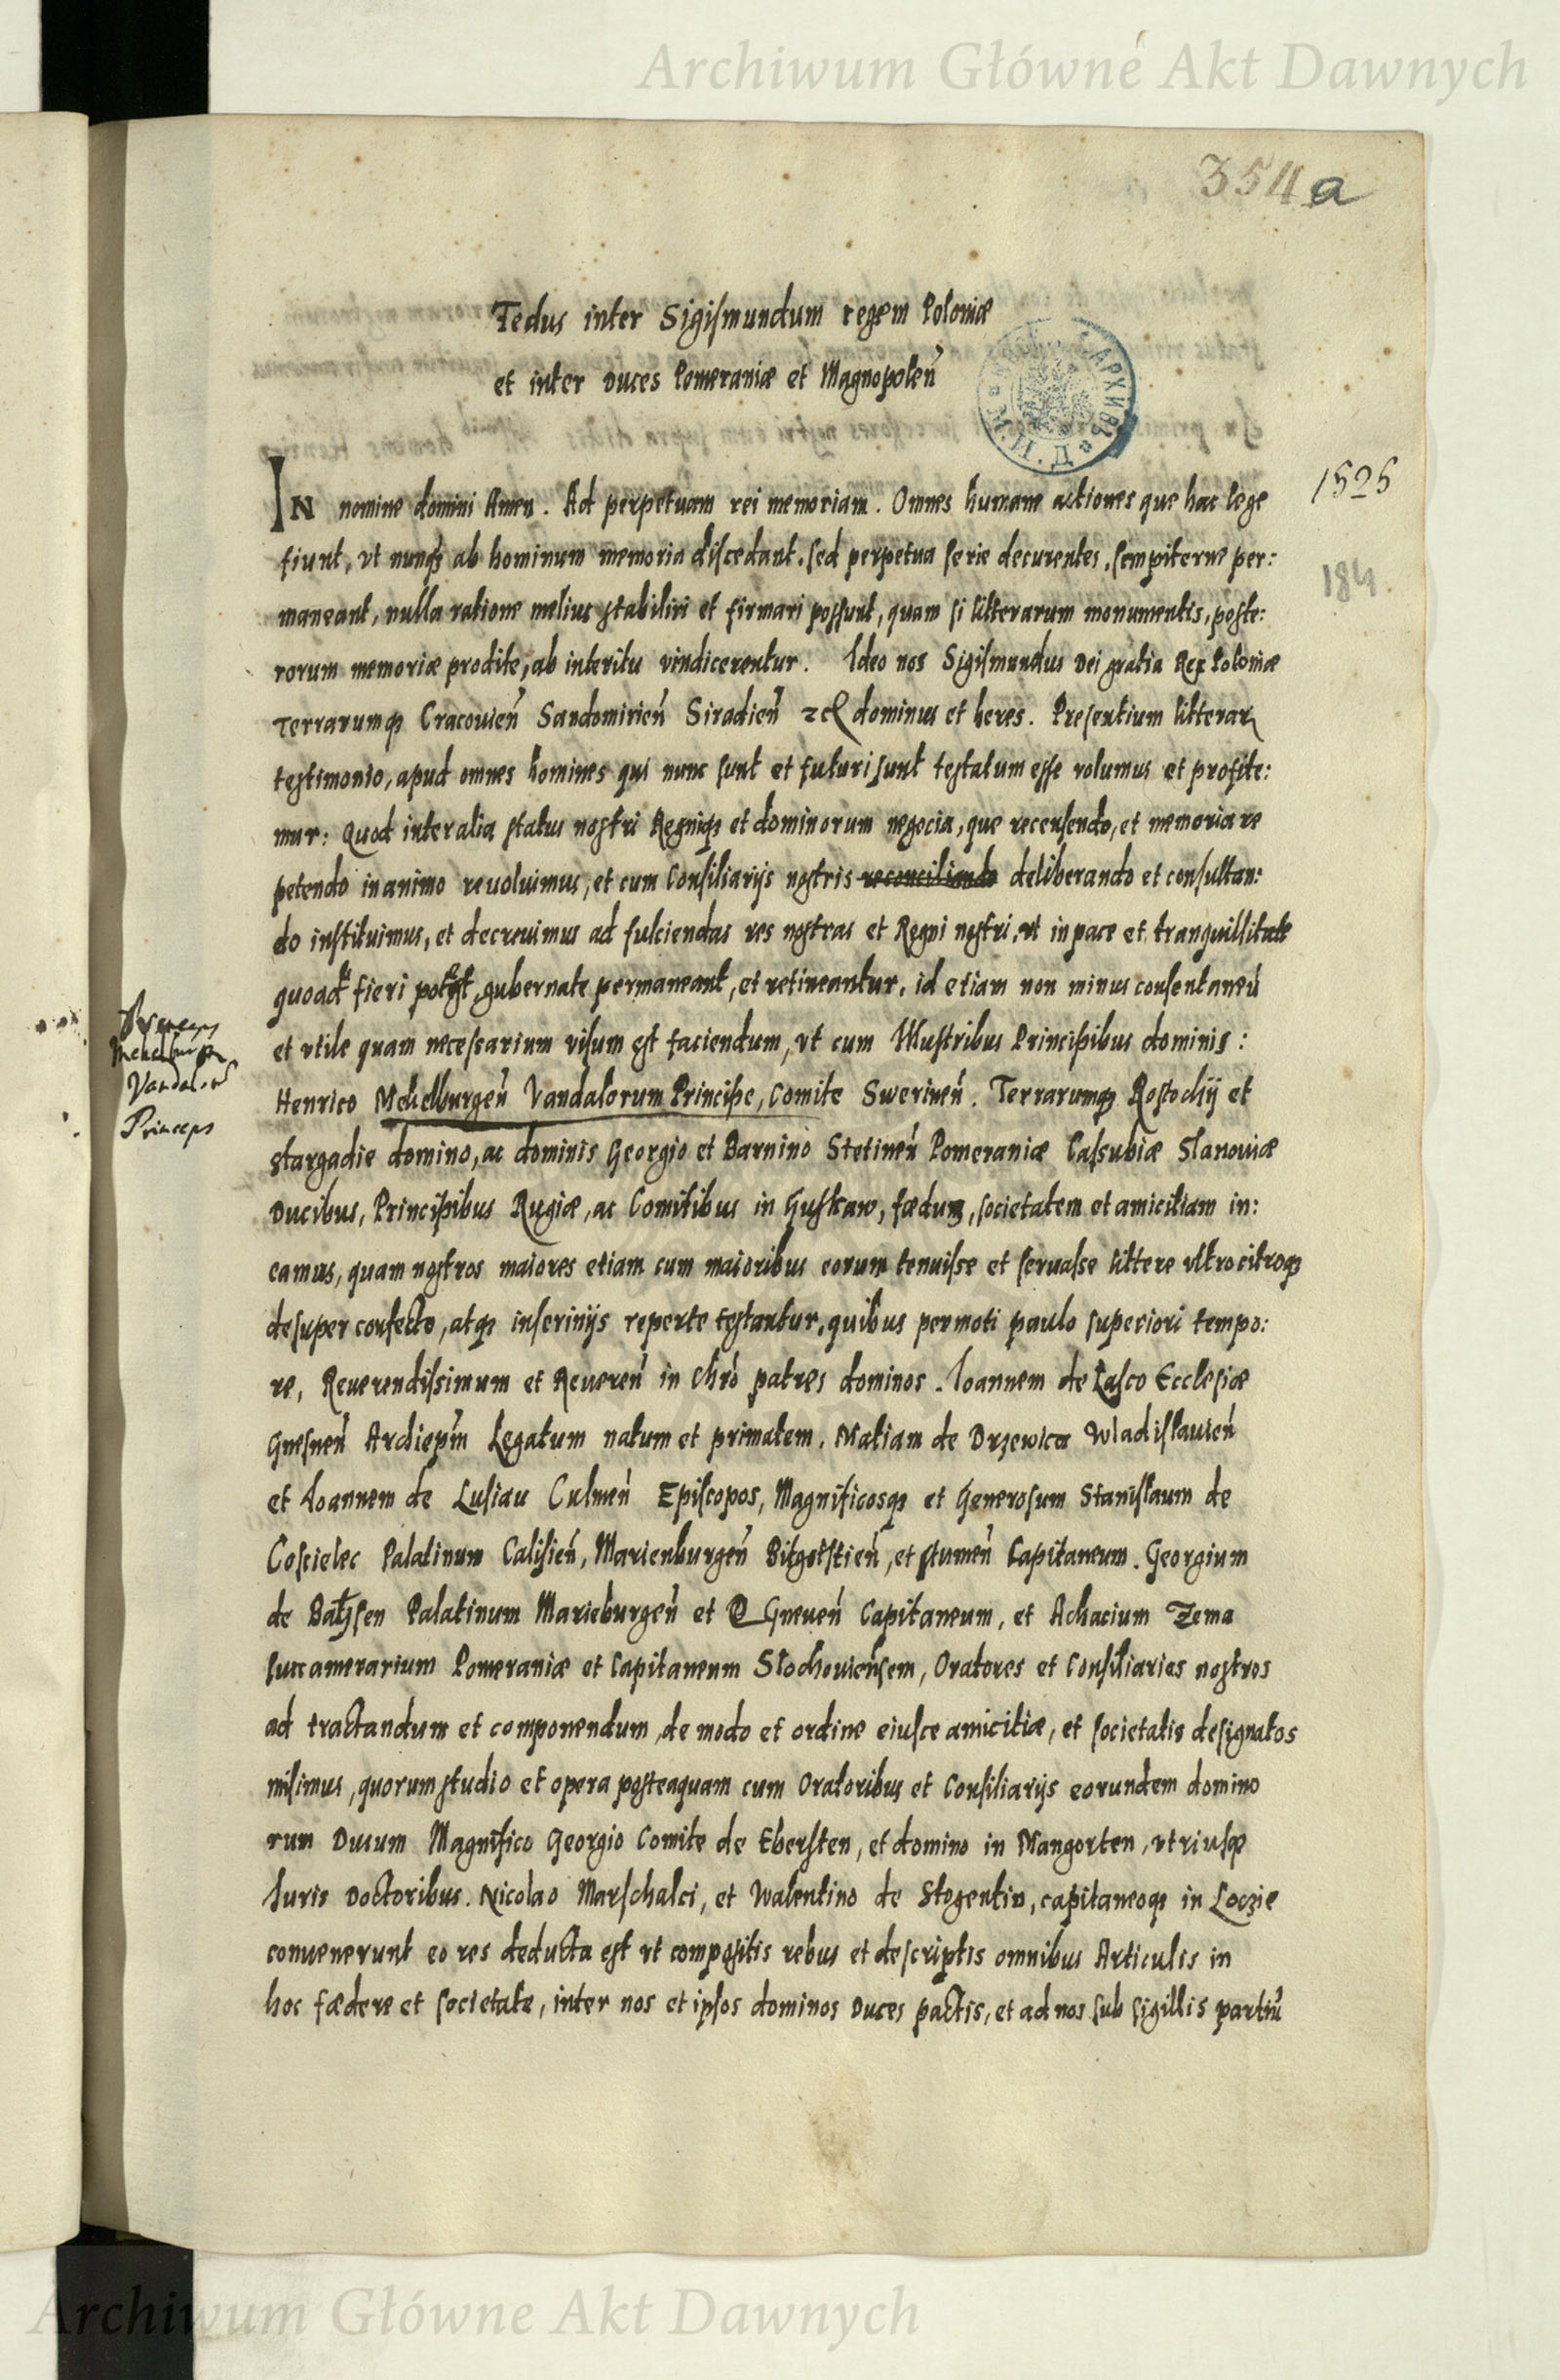 Archiwum Główne Akt Dawnych
354 a
Fedus inter Sigismundum regem Poloniæ
et inter Duces Pomeraniæ et Magnopoleñ
1525
184
In nomine domini Amen. Ad perpetuam rei memoriam. Omnes humane actiones que hac lege
fiunt, vt nunqꝫ ab hominum memoria discedant, sed perpetua serie decurentes, sempiterne per:
maneant, nulla ratione melius stabiliri et firmari possunt, quam si litterarum monumentis, poste:
rorum memoriæ prodite, ab interitu vindicerentur. Ideo nos Sigismundus Dei gratia Rex Poloniæ
Terrarumqꝫ Cracouieñ Sandomirieñ Siradieñ ꝛc dominus et heres. Presentium litterarꝝ
testimonio, apud omnes homines qui nunc sunt et futuri sunt testatum esse volumus et profite:
mur: Quod inter alia status nostri Regniqꝫ et dominorum negocia, que recensendo, et memoria re
petendo in animo reuoluimus, et cum Consiliarijs nostris reconciliando deliberando et consultan:
do instituimus, et decreuimus ad fulciendas res nostras et Regni nostri, vt in pace et tranquillitate
quoad fieri potest, gubernate permaneant, et retineantur, id etiam non minus consentaneũ
et vtile quam necessarium visum est faciendum, vt cum Illustribus Principibus dominis:
Henrico Mekelburgeñ Vandalorum Principe, Comite Swerineñ. Terrarumqꝫ Rostochij et
Vandalorũ
Princeps
Stargadie domino, ac dominis Georgio et Barnino Stetineñ Pomeraniæ Cassubiæ Slanouiæ
Ducibus, Principibus Rugiæ, ac Comitibus in Guskaw, fædus, societatem et amicitiam in:
eamus, quam nostros maiores etiam cum maioribus eorum tenuisse et seruasse littere vltro citroqꝫ
desuper confecte, atqꝫ in scrinijs reperte testantur, quibus permoti paulo superiori tempo:
re, Reuerendissimum et Reuereñ in Chro patres dominos. Ioannem de Lasco Ecclesiæ
Gnesneñ Archiepm̃ Legatum natum et primatem, Matiam de Drzewica Wladislauieñ
et Ioannem de Lusiau Culmeñ Episcopos, Magnificosqꝫ et Generosum Stanislaum de
Coscielec Palatinum Calisieñ, Marienburgeñ Bitgostieñ, et stumeñ Capitaneum. Georgium
de Batzsen Palatinum Marieburgeñ et Gneueñ Capitaneum, et Achacium Zema
succamerarium Pomeraniæ et Capitaneum Slochouiensem, Oratores et Consiliarios nostros
ad tractandum et componendum, de modo et ordine eiusce amicitiæ, et societatis designatos
misimus, quorum studio et opera posteaquam cum Oratoribus et Consiliarijs eorundem domino
rum Ducum Magnifico Georgio Comite de Ebersten, et domino in Mangorten, vtriusqꝫ
Iuris Doctoribus. Nicolao Marschalci, et Walentino de Stogentin, capitaneoqꝫ in Loczie
conuenerunt eo res deducta est vt compositis rebus et descriptis omnibus Articulis in
hoc fædere et societate, inter nos et ipsos dominos Duces pactis, et ad nos sub sigillis partiũ
Archiwum Główne Akt Dawnych